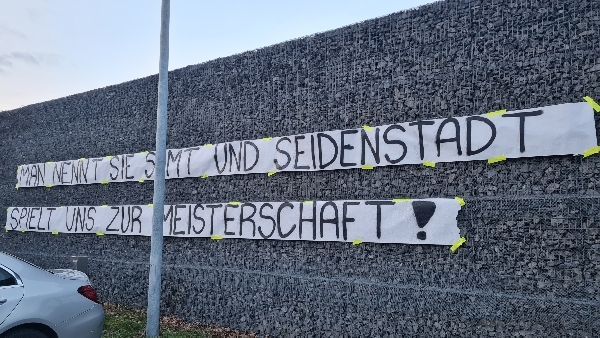 MAN NENNT SIE SAMT UND SEIDENSTADT
SPIELT UNS ZUR MEISTERSCHAFT!